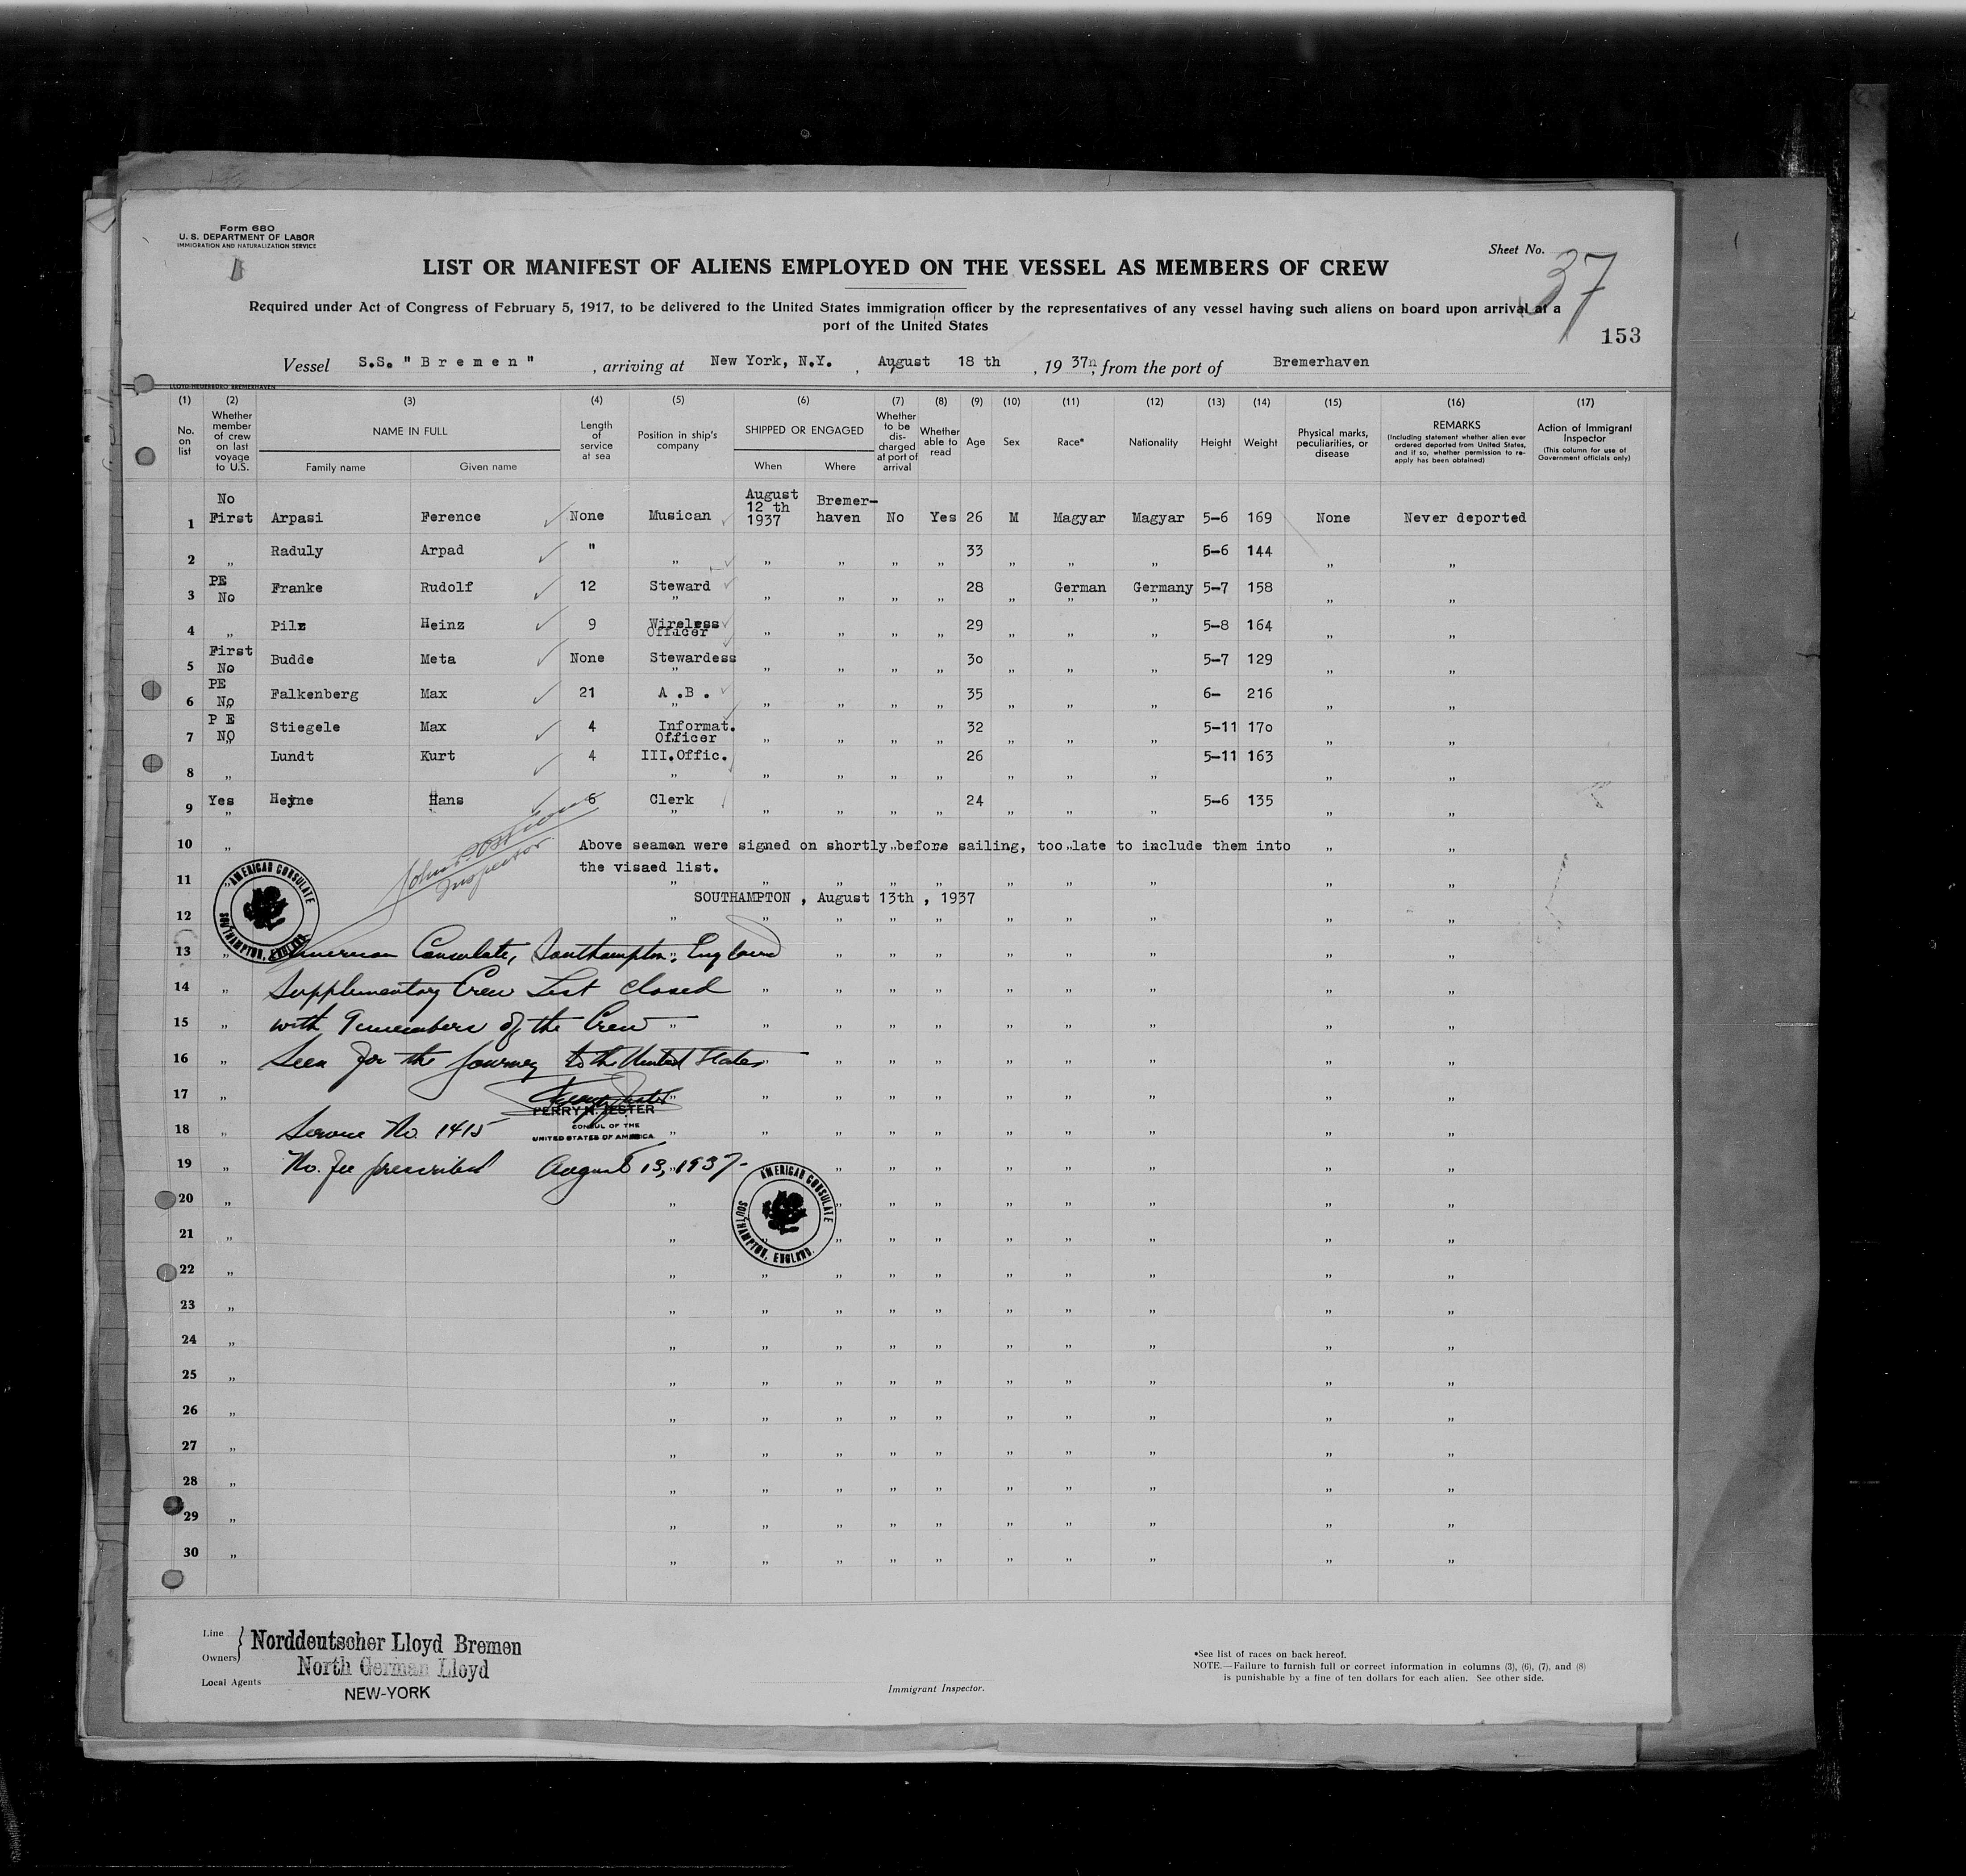 Form 680
U. S. DEPARTMENT OF LABOR
IMMIGRATION AND NATURALIZATION SERVICE
Sheet No. 37
LIST OR MANIFEST OF ALIENS EMPLOYED ON THE VESSEL AS MEMBERS OF CREW
Required under Act of Congress of February 5, 1917, to be delivered to the United States immigration officer by the representatives of any vessel having such aliens on board upon arrival at a
port of the United States
153
Vessel S.S. " B r e m e n " , arriving at New York, N.Y. , August 18 th , 19 37 , from the port of Bremerhaven
LLOYD-HEUERBÜRO BREMERHAVEN
(1) (2) (3) (4) (5) (6) (7) (8) (9) (10) (11) (12) (13) (14) (15) (16) (17)
No. on list
Whether member of crew on last voyage to U.S.
NAME IN FULL
Family name Given name
Length of service at sea
Position in ship's company
SHIPPED OR ENGAGED
When Where
Whether to be discharged at port of arrival
Whether able to read
Age Sex Race* Nationality Height Weight
Physical marks, peculiarities, or disease
REMARKS
(Including statement whether alien ever ordered deported from United States, and if so, whether permission to re-apply has been obtained)
Action of Immigrant Inspector
(This column for use of Government officials only)
1 No First Arpasi Ference None Musican August 12 th 1937 Bremer-haven No Yes 26 M Magyar Magyar 5-6 169 None Never deported
2 „ Raduly Arpad " „ „ „ „ „ 33 „ „ „ 5-6 144 „ „
3 PE No Franke Rudolf 12 Steward „ „ „ „ 28 „ German Germany 5-7 158 „ „
4 „ Pilz Heinz 9 Wireless Officer „ „ „ „ 29 „ „ „ 5-8 164 „ „
5 First No Budde Meta None Stewardess „ „ „ „ 30 „ „ „ 5-7 129 „ „
6 PE No Falkenberg Max 21 A .B . „ „ „ „ 35 „ „ „ 6- 216 „ „
7 P E NO Stiegele Max 4 Informat. Officer „ „ „ „ 32 „ „ „ 5-11 170 „ „
8 „ Lundt Kurt 4 III.Offic. „ „ „ „ 26 „ „ „ 5-11 163 „ „
9 Yes Heyne Hans 6 Clerk „ „ „ „ 24 „ „ „ 5-6 135 „ „
Inspector
10 Above seamen were signed on shortly before sailing, too late to include them into
11 the visaed list.
SOUTHAMPTON , August 13th , 1937
12
AMERICAN CONSULATE
SOUTHAMPTON, ENGLAND.
13 American Consulate, Southampton, England
14 Supplementary Crew List closed
15 with 9 members of the Crew
16 Seen for the journey to the United States
17
PERRY N. JESTER
CONSUL OF THE
UNITED STATES OF AMERICA
18 Service No. 1415
19 No fee prescribed August 13, 1937-
AMERICAN CONSULATE
SOUTHAMPTON, ENGLAND.
20
21
22
23
24
25
26
27
28
29
30
Line
Owners
Norddeutscher Lloyd Bremen
North German Lloyd
Local Agents
NEW-YORK
Immigrant Inspector.
*See list of races on back hereof.
NOTE.—Failure to furnish full or correct information in columns (3), (6), (7), and (8)
is punishable by a fine of ten dollars for each alien. See other side.